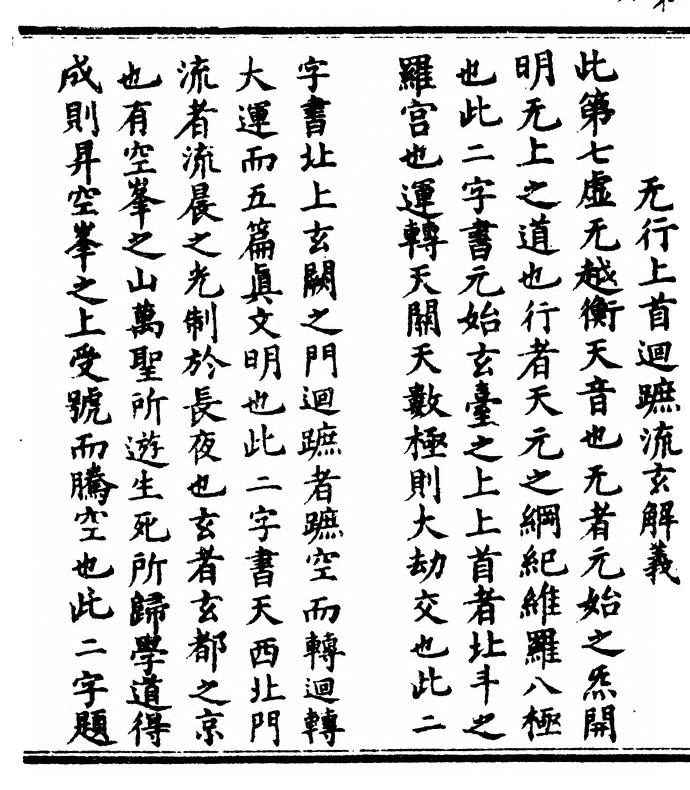 无行上首迴蹠流玄解義
此第七虛无越衡天音也无者元始之炁開
明无上之道也行者天元之綱紀維羅八極
也此二字書元始玄臺之上上首者北斗之
羅宫也運轉天關天數極則大劫交也此二
字書北上玄闕之門迴蹠者蹠空而轉迴轉
大運而五篇真文明也此二字書天西北門
流者流晨之光制於長夜也玄者玄都之京
也有空峯之山萬聖所遊生死所歸學道得
成則昇空峯之上受號而騰空也此二字題